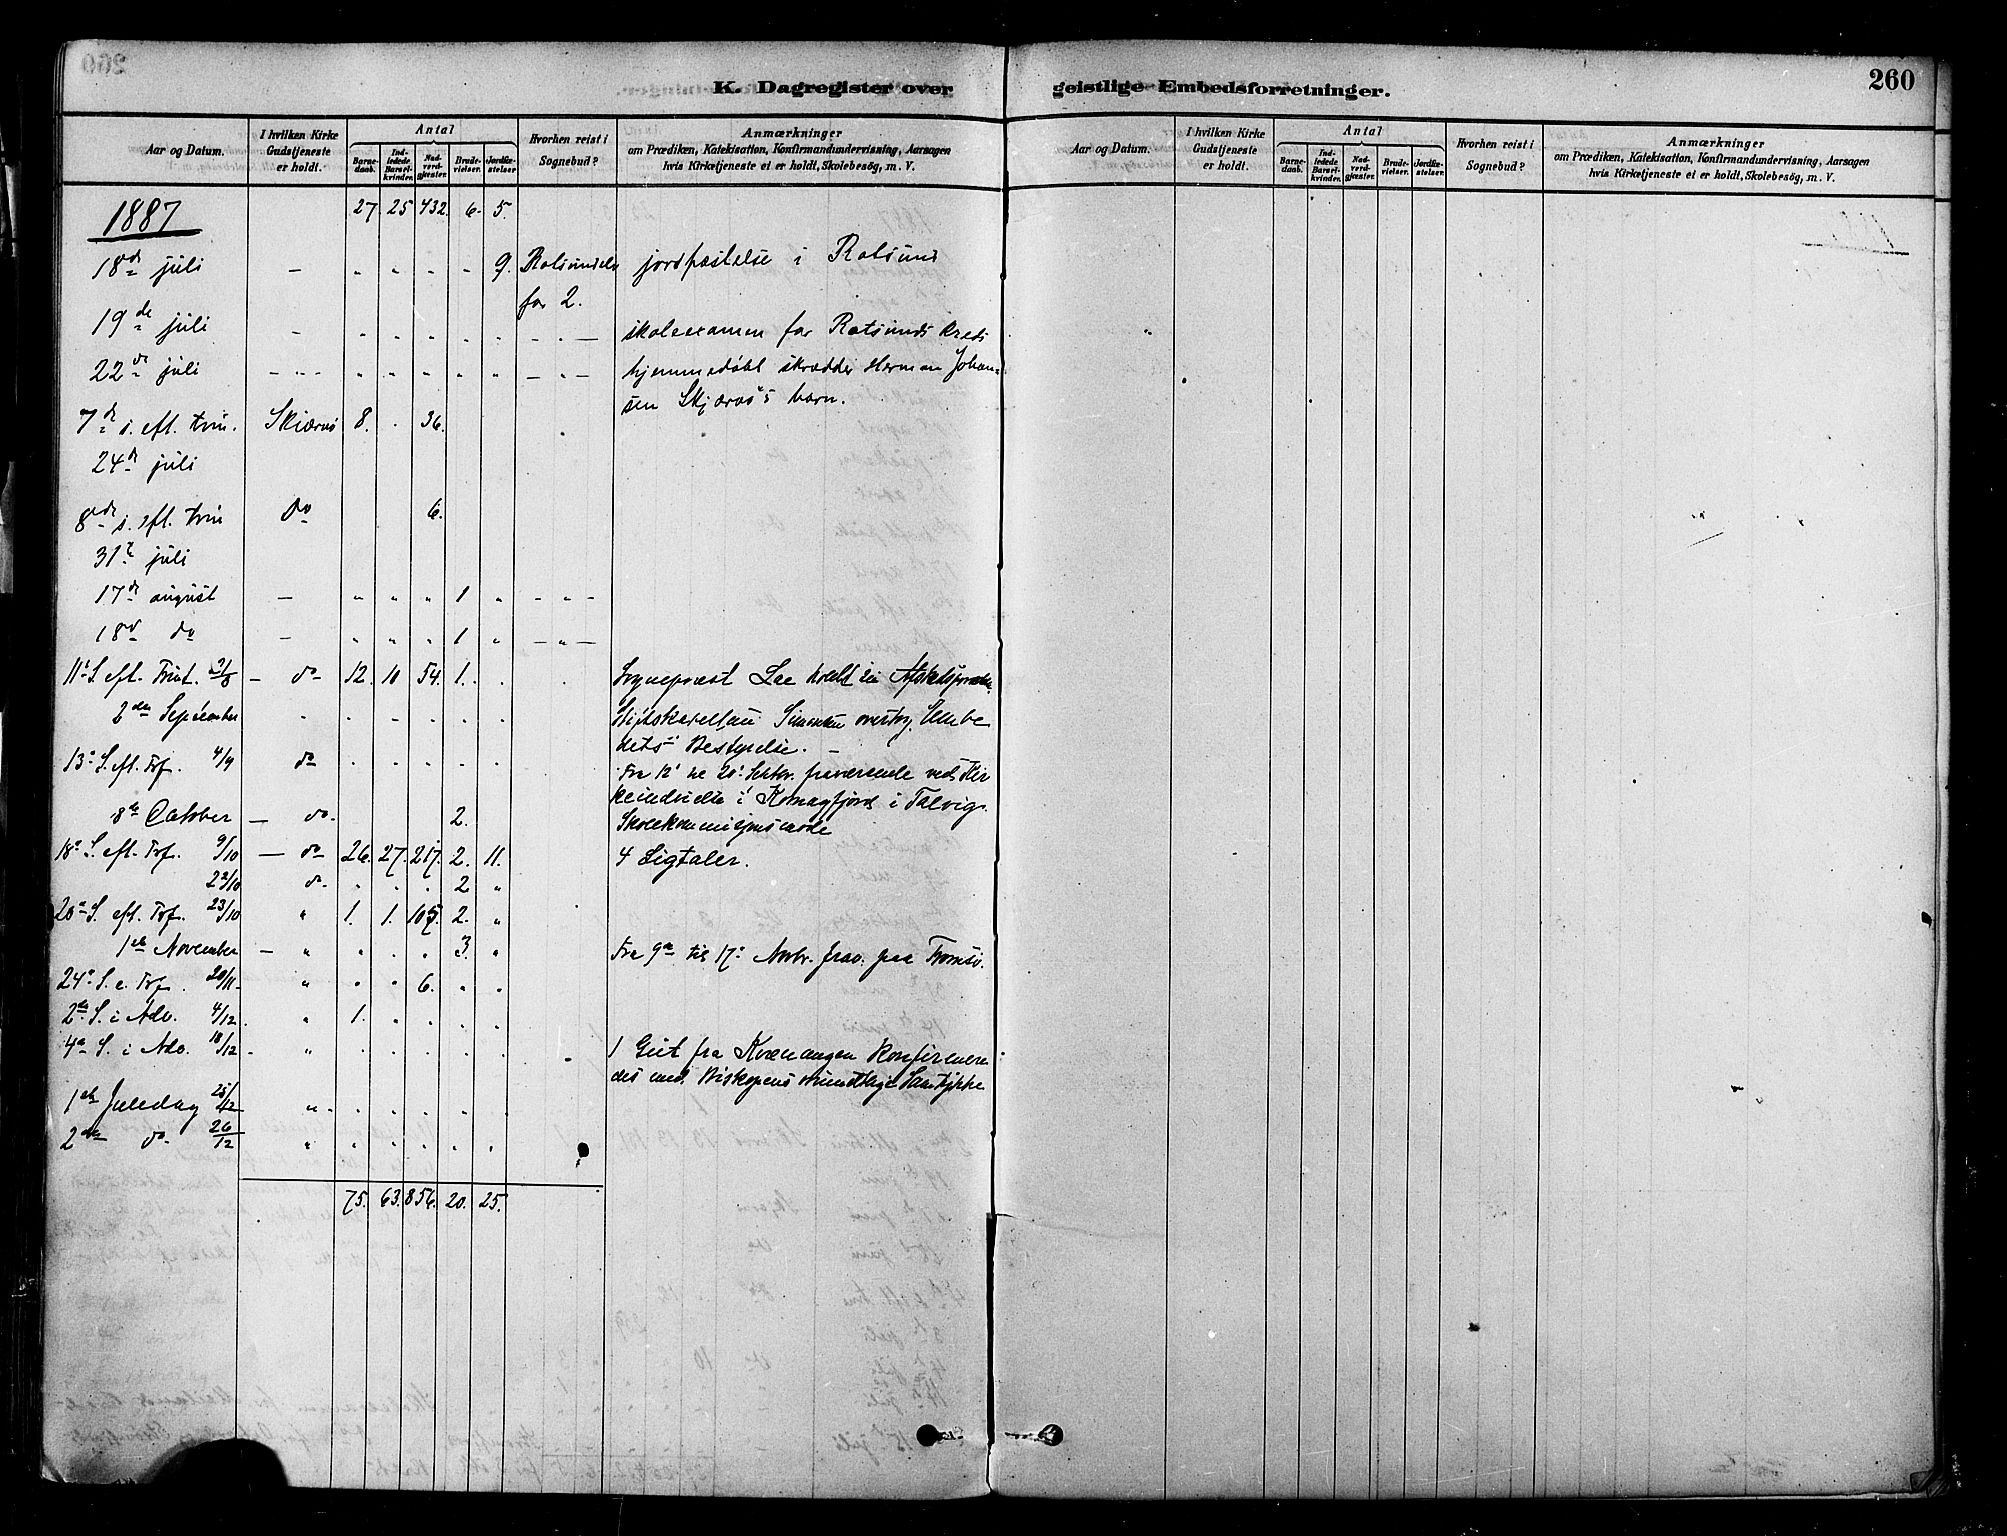 260
K. Dagregister over geistlige Embedsforretninger.
Aar og Datum. I hvilken Kirke Gudstjeneste er holdt. Antal Barnedaab. Indledede Barselkvinder. Nadverdgjæster. Brudevielser. Jordfæstelser Hvorhen reist i Sognebud? Anmærkninger om Prædiken, Katekisation, Konfirmandundervisning, Aarsagen hvis Kirketjeneste ei er holdt, Skolebesög, m. V.
Aar og Datum. I hvilken Kirke Gudstjeneste er holdt. Antal Barnedaab. Indledede Barselkvinder. Nadverdgjæster. Brudevielser. Jordfæstelser. Hvorhen reist i Sognebud? Anmærkninger om Prædiken, Katekisation, Konfirmandundervisning, Aarsagen hvis Kirketjeneste ei er holdt, Skolebesög, m. V.
1887 27. 25 432. 6. 5.
18de juli – " " " " 9. jordfæstelse i Rotsund
for 2.
19de juli – " " " " " – " – skoleexamen for Rotsunds kreds
22de juli – " – " " " " " – " – hjemmedøbt skrædder Herman Johan-
sen Skjærvø's barn.
7de s. eft. trin. Skjærvø 8. . 36.
24de juli
8de s. eft. trin do 6.
31te juli
17de august – " " " 1 " – " –
18de do – " " " 1 " – " –
11te S. eft. Trint. 21/8 – do 12. 10 54. 1. Sogneprest Lae holdt sin Afskedspræken.
2den September Stiftskapellan Simonsen overtog Embe
dets Bestyrelse. –
13de S. eft. Trf. 4/9 do Fra 12te til 20de Septbr. fraværende ved Kir
keindvielse i Komagfjord i Talvig.
8de October – do. 2. Skolekommisjonsmøde
18de S. eft. Trf. 9/10 – do 26. 27. 217. 2. 11. 4 Ligtaler.
22/10 do. 2 "
20de S. eft. Trf. 23/10 " 1. 1. 105. 2. "
1ste November – " " " . 3. " Fra 9de til 17de Novbr. frav. paa Tromsø.
24de S. e. Trf. 20/11 " " " 6. " "
2den S. i Adv. 4/12. " 1.
4de S. i Adv. 18/12 – " 1 Gut fra Kvænangen konfirmere
des med Biskopens mundtlige Samtykke
1ste Juledag 25/12 ".
2den do. 26/12 "
75. 63. 856. 20. 25.